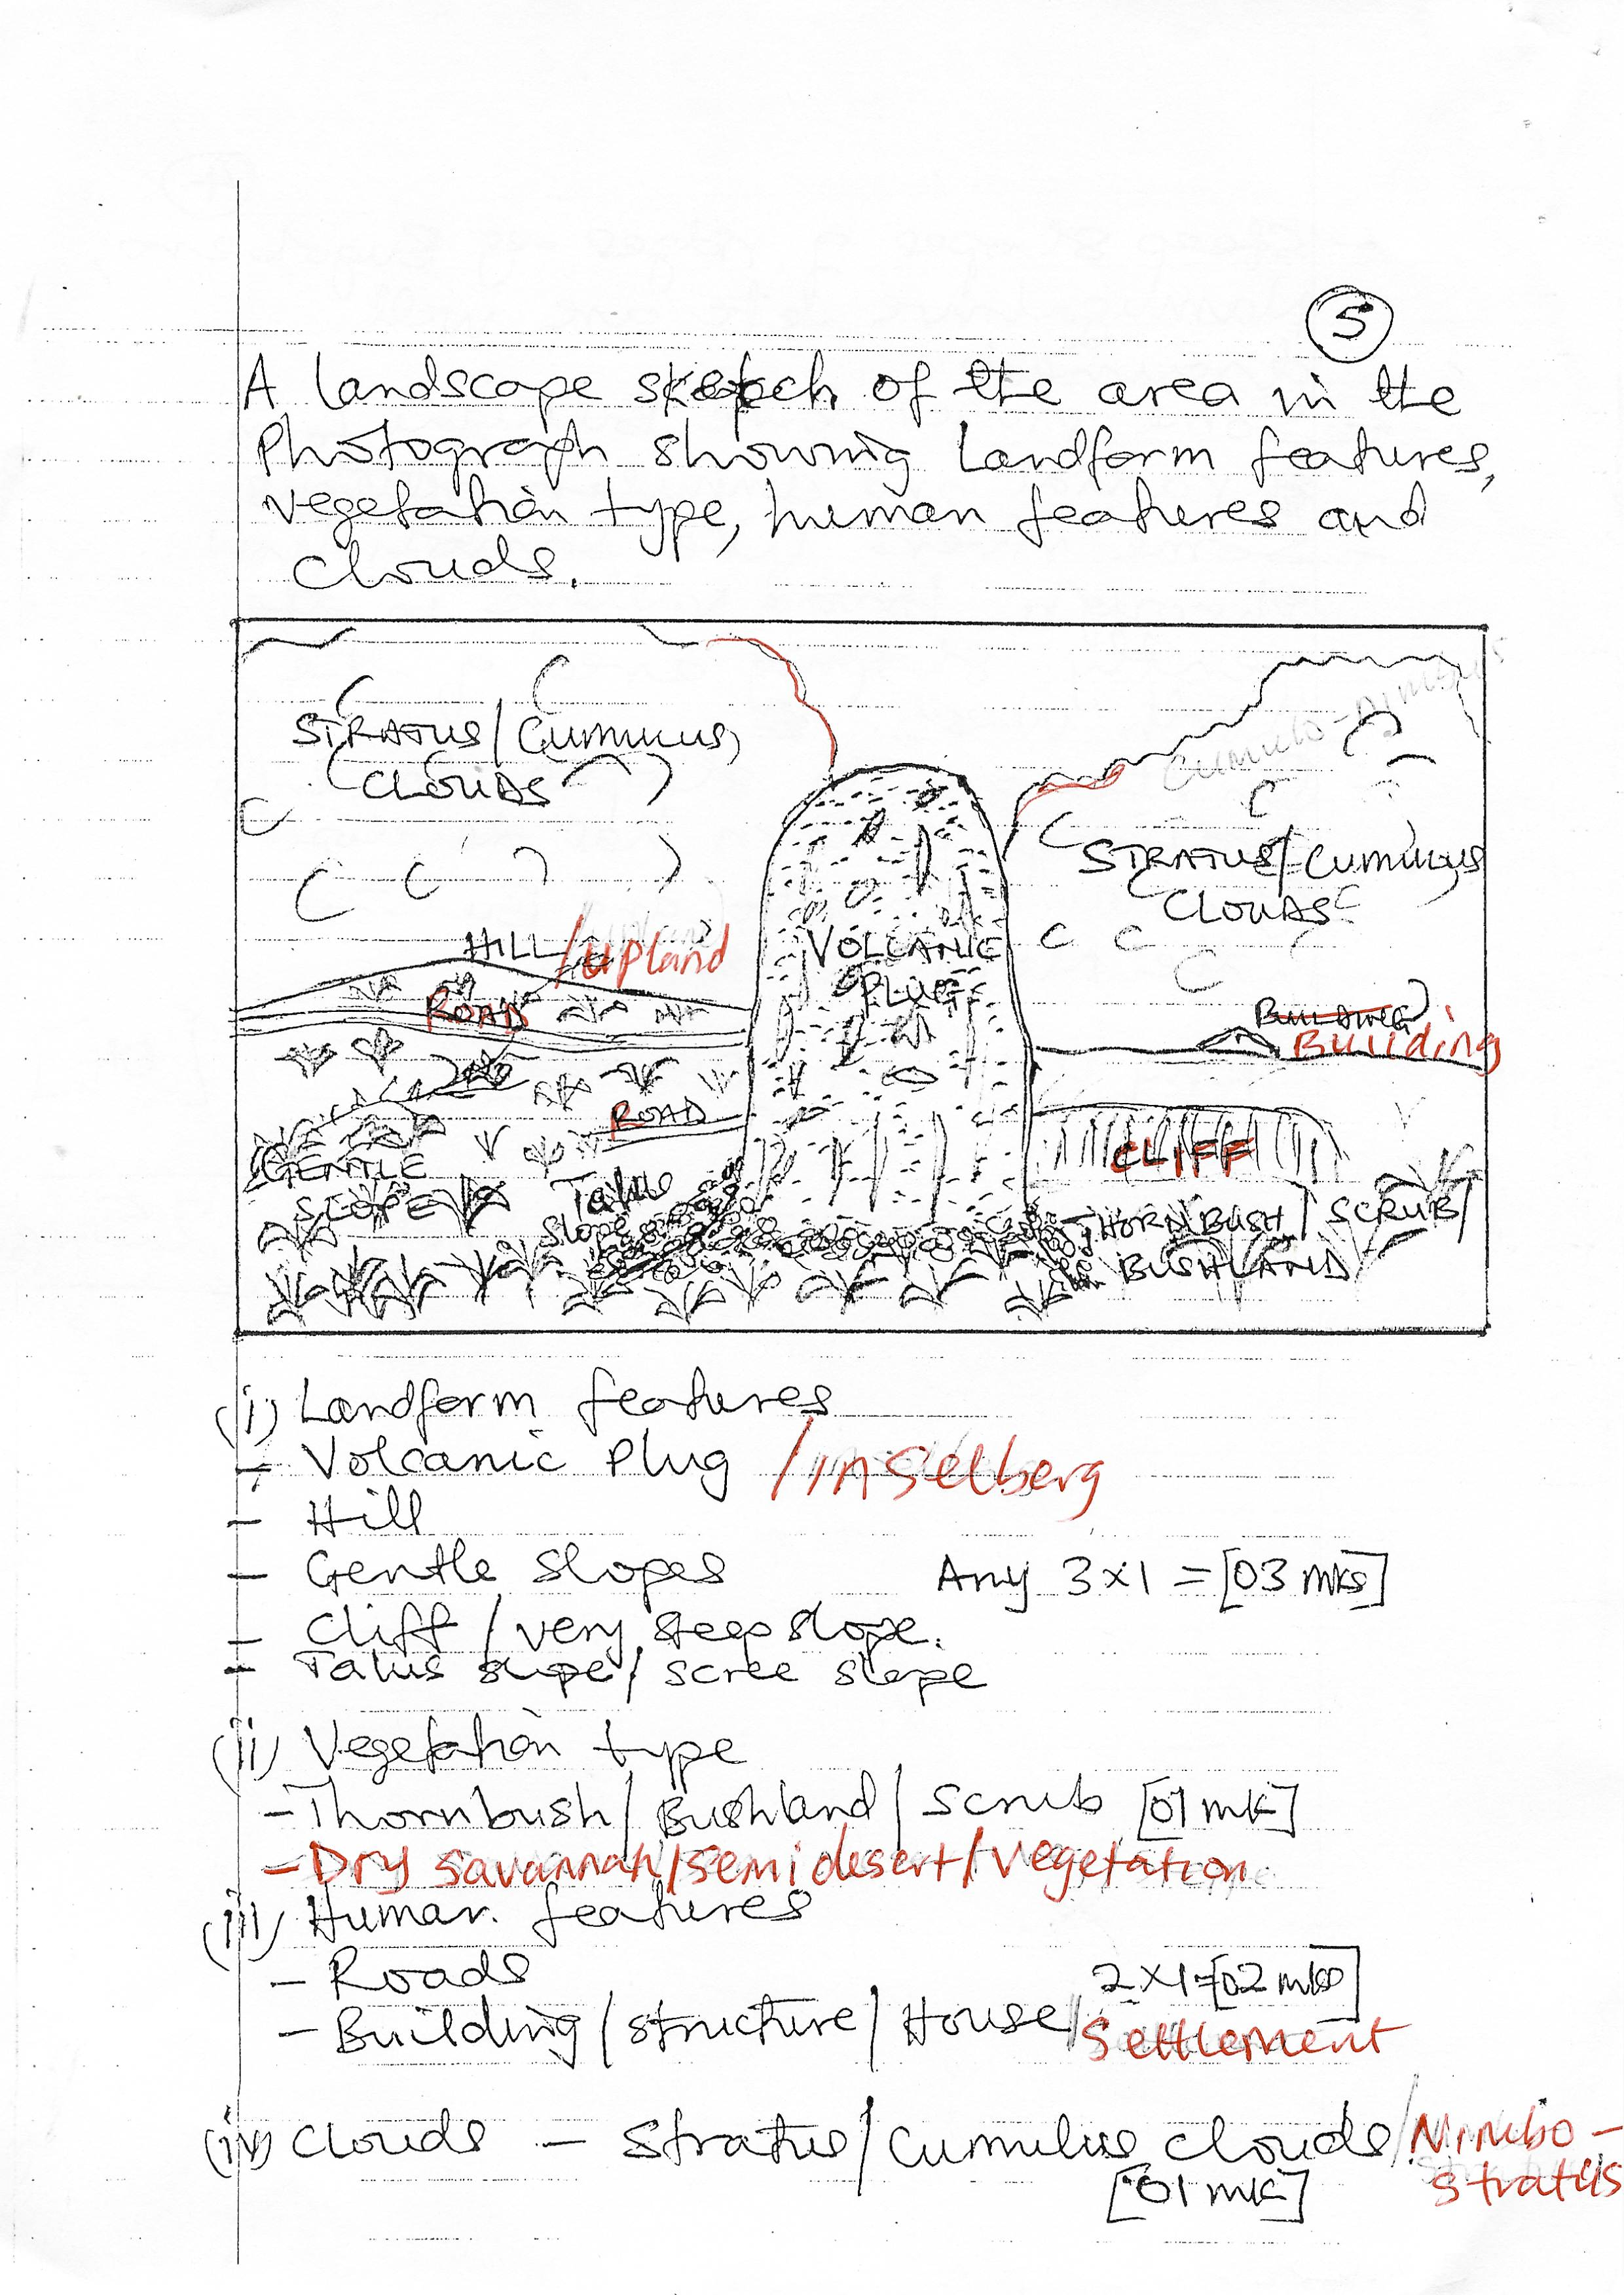 5
A landscape sketch of the area in the
Photograph showing Landform features,
vegetation type, human features and
clouds.
STRATUS/CUMULUS
CLOUDS
Cumulo-nimbus
STRATUS/CUMULUS
CLOUDS
HILL/upland
VOLCANIC
PLUG
ROAD
BUILDING
Building
ROAD
CLIFF
GENTLE
SLOPE
Talus
Slope
THORNBUSH/SCRUB/
BUSHLAND
(i) Landform features
- Volcanic Plug /inselberg
- Hill
- Gentle slopes Any 3x1 = [03 mks]
- Cliff / very steep slope.
- Talus slope/ scree slope
(ii) Vegetation type
- Thornbush/Bushland/Scrub [01 mk]
- Dry savannah/semi desert/vegetation
(iii) Human features
- Roads 2x1=[02 mks]
- Building/structure/House/Settlement
(iv) Clouds - Stratus/Cumulus clouds/Nimbo-
stratus
[01 mk]